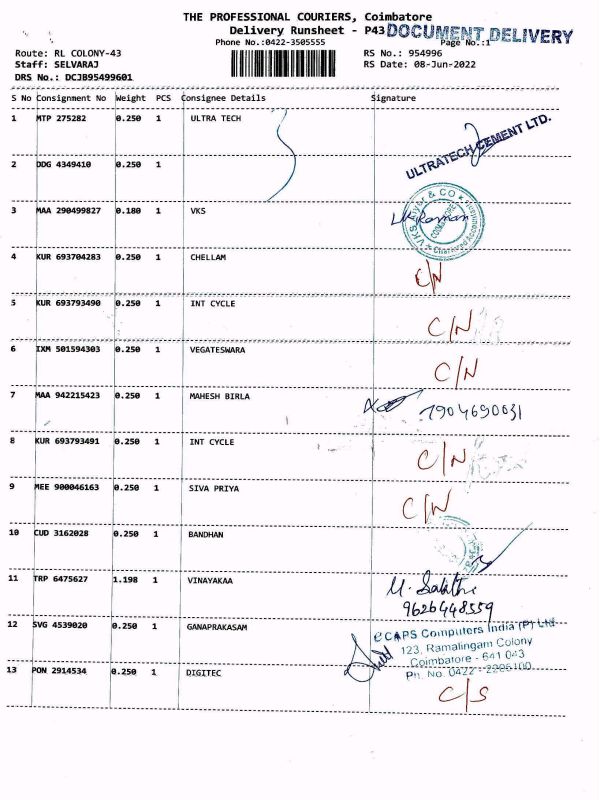 THE PROFESSIONAL COURIERS, Coimbatore
Delivery Runsheet - P43 DOCUMENT DELIVERY
Phone No.:0422-3505555 Page No.:1
Route: RL COLONY-43 RS No.: 954996
Staff: SELVARAJ RS Date: 08-Jun-2022
DRS No.: DCJB95499601
S No Consignment No Weight PCS Consignee Details Signature
1 MTP 275282 0.250 1 ULTRA TECH
ULTRATECH CEMENT LTD.
2 DDG 4349410 0.250 1
3 MAA 290499827 0.180 1 VKS
VKS Aiyer & CO
Chartered Accountants
4 KUR 693704283 0.250 1 CHELLAM C/N
5 KUR 693793490 0.250 1 INT CYCLE C/N
6 IXM 501594303 0.250 1 VEGATESWARA C/N
7 MAA 942215423 0.250 1 MAHESH BIRLA 7904690031
8 KUR 693793491 0.250 1 INT CYCLE C/N
9 MEE 900046163 0.250 1 SIVA PRIYA C/N
10 CUD 3162028 0.250 1 BANDHAN
11 TRP 6475627 1.198 1 VINAYAKAA M. Sakthi
9626448559
12 SVG 4539020 0.250 1 GANAPRAKASAM eCAPS Computers India (P) Ltd
123, Ramalingam Colony
Coimbatore - 641 043
Ph. No. 0422 - 2206100
13 PON 2914534 0.250 1 DIGITEC C/S